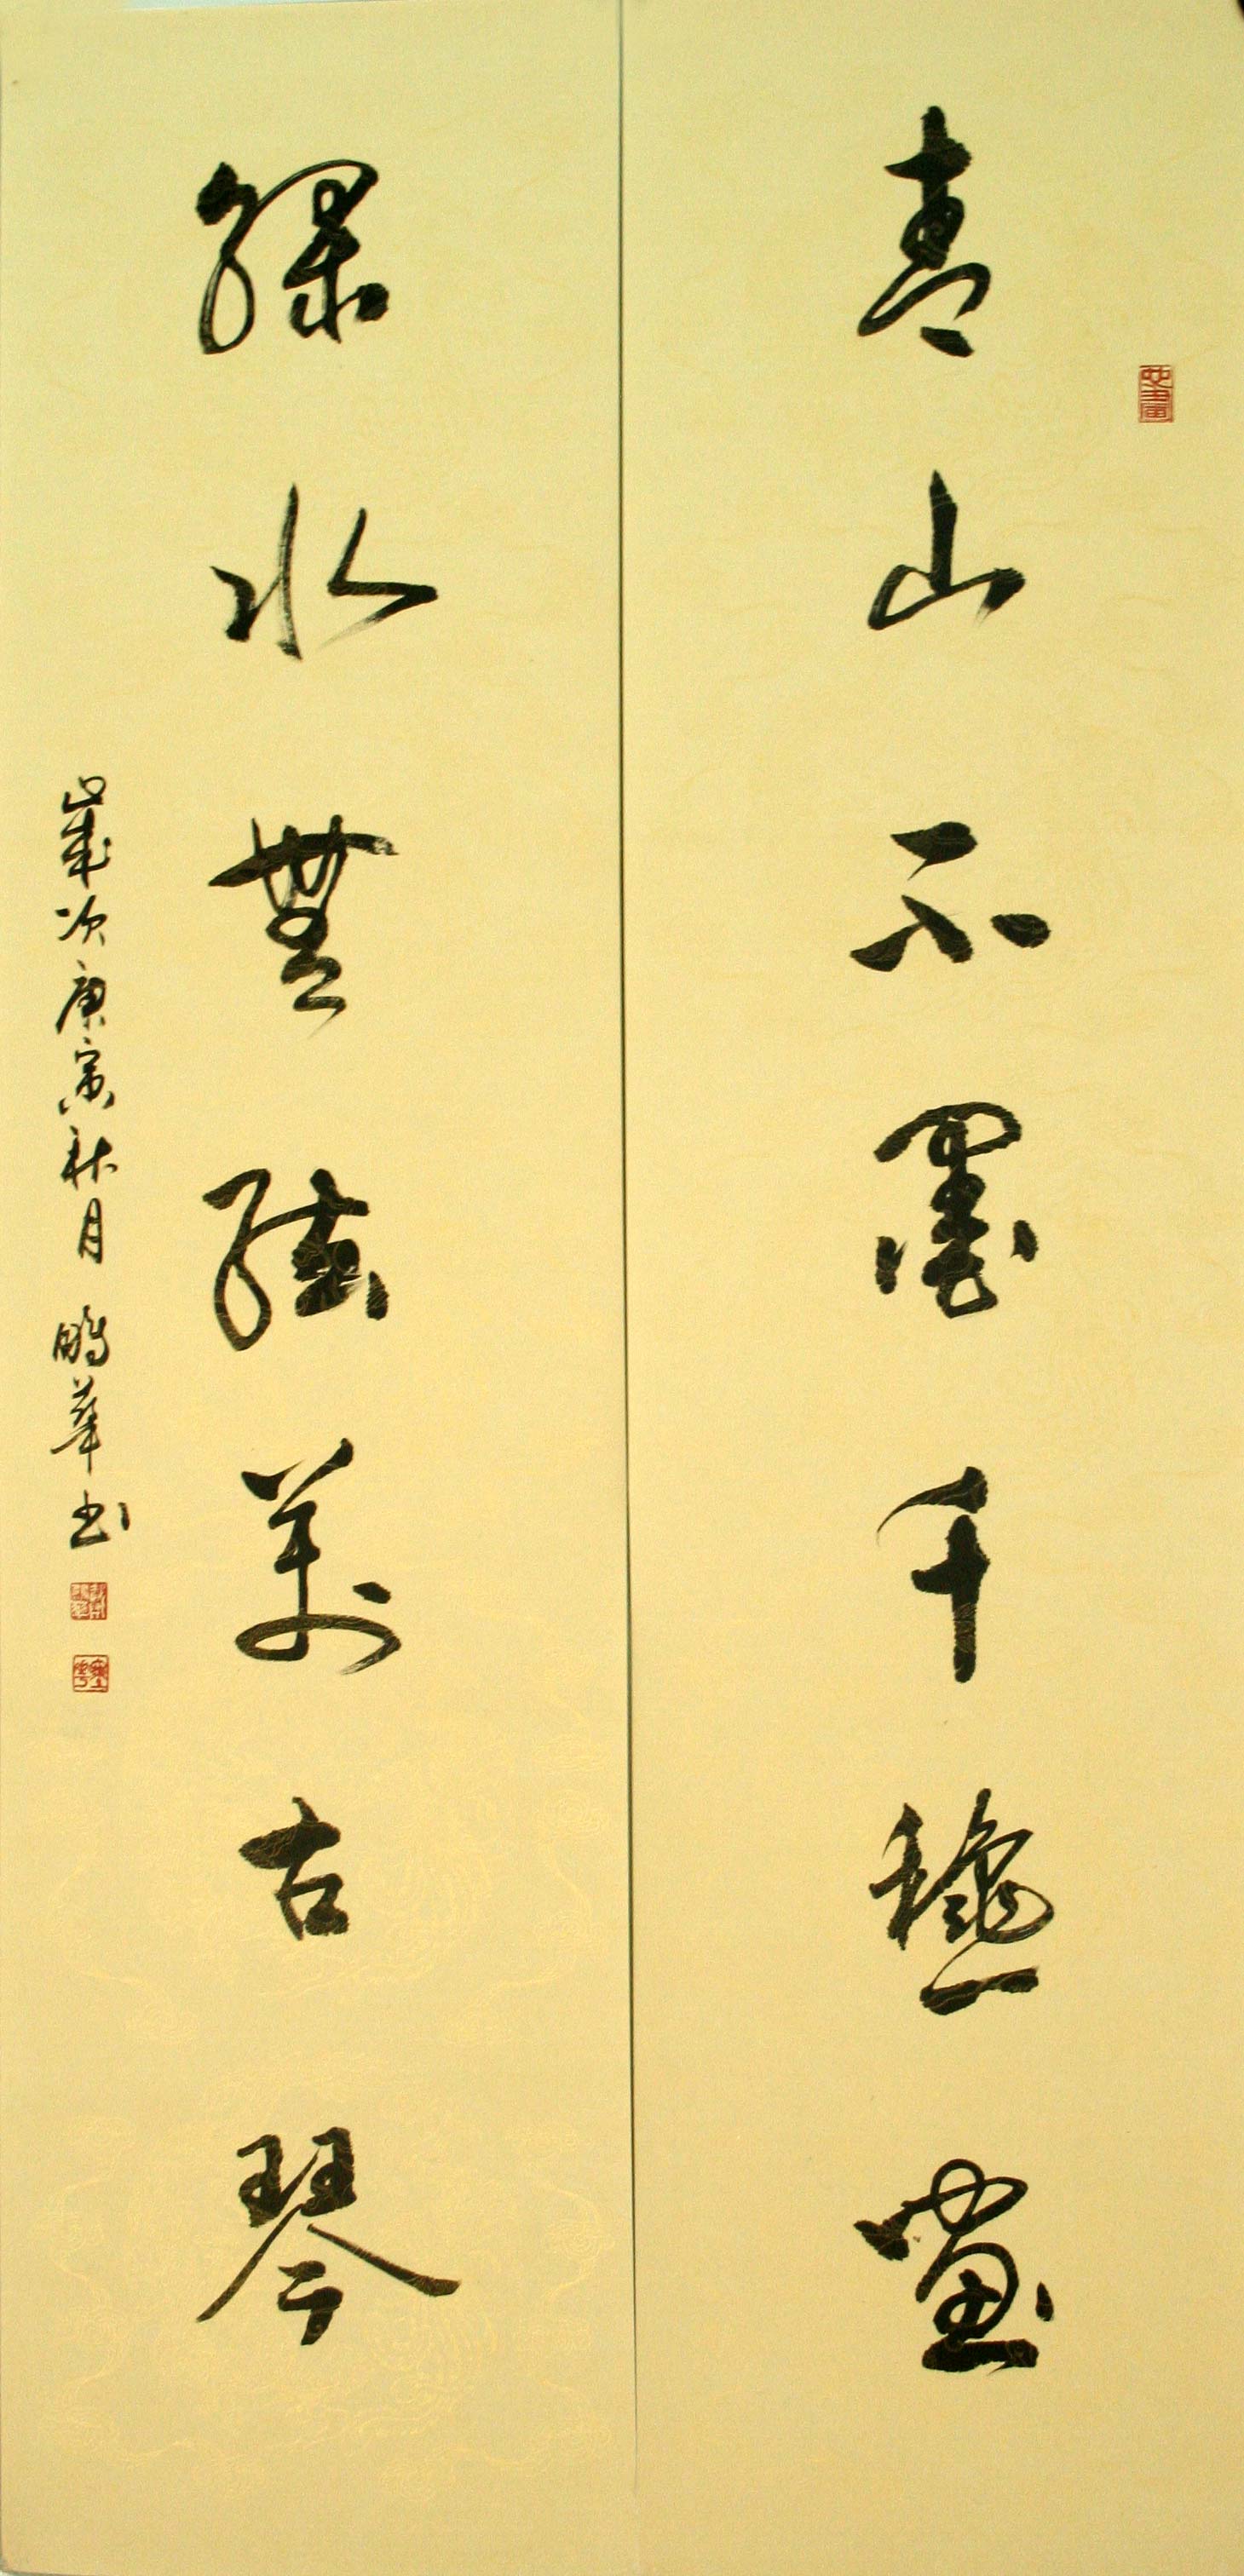 青山不墨千龝畫
綠水無絃萬古琴
歲次庚寅秋月 鵬華书